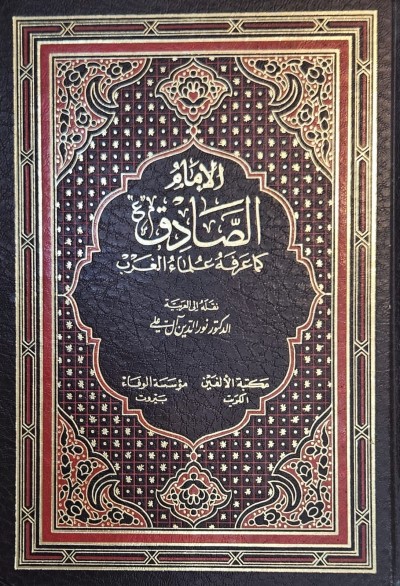 الإمام
الصادق ع
كما عرفه علماء الغرب
نقله إلى العربية
الدكتور نور الدين آل علي
مكتبة الألفين مؤسسة الوفاء
الكويت بيروت